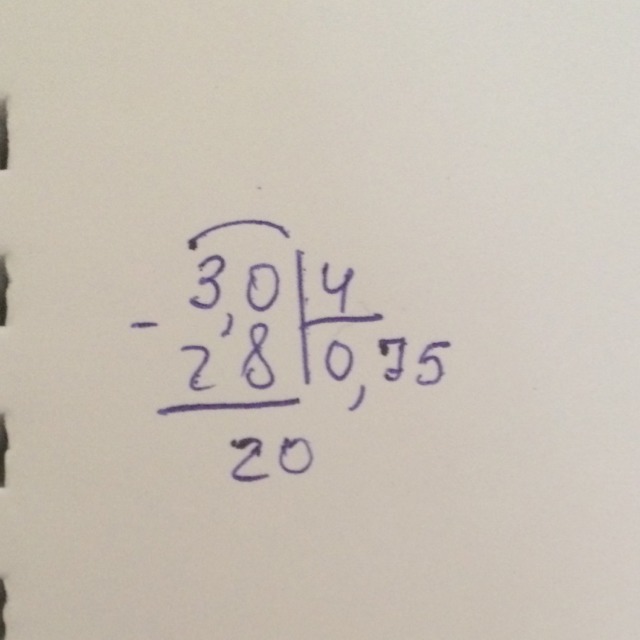 3,0 4
- 28 0,75
20